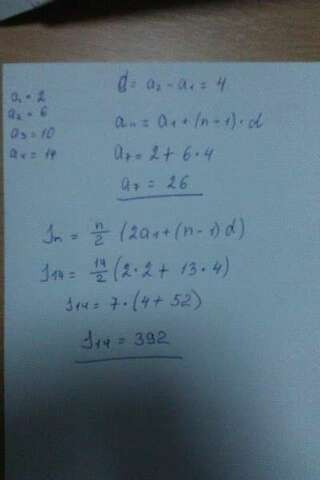 a₁ = 2
a₂ = 6
a₃ = 10
a₄ = 14
d = a₂ - a₁ = 4
aₙ = a₁ + (n-1)·d
a₇ = 2 + 6·4
a₇ = 26
Sₙ = n/2 (2a₁ + (n-1)d)
S₁₄ = 14/2 (2·2 + 13·4)
S₁₄ = 7·(4 + 52)
S₁₄ = 392